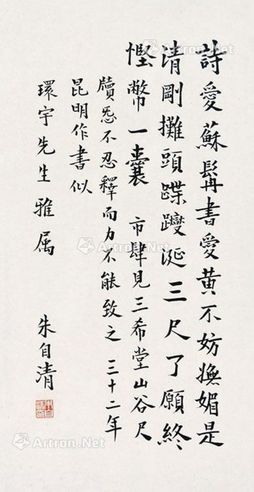 詩愛蘇髯書愛黃不妨嫵媚是
清剛攤頭蹀躞涎三尺了願終
慳幣一囊 市肆見三希堂山谷尺
牘㤅不忍釋而力不能致之 三十二年
昆明作書似
環宇先生雅属
朱自清
Artron.Net
Artron.Net